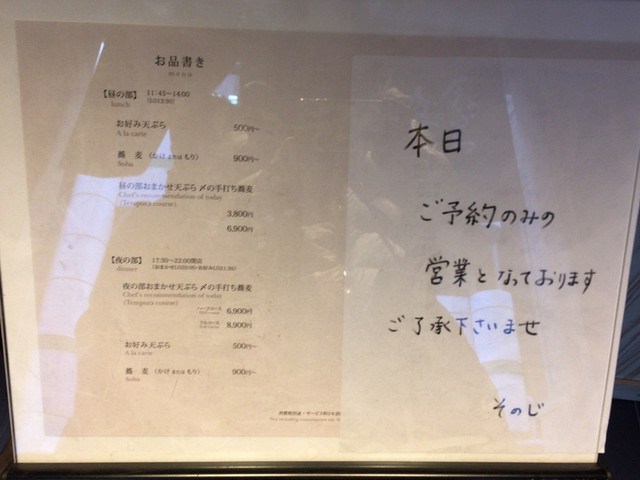 お品書き
【昼の部】 11:45〜14:00
lunch
お好み天ぷら 500円〜
A la carte
蕎 麦 (かけ または もり) 900円〜
Soba
昼の部おまかせ天ぷら〆の手打ち蕎麦
Chef's recommendation of today
(Tempura course)
3,800円
6,900円
【夜の部】 17:30〜22:00閉店
dinner
夜の部おまかせ天ぷら〆の手打ち蕎麦
Chef's recommendation of today
(Tempura course)
ハーフコース 6,900円
フルコース 8,900円
お好み天ぷら 500円〜
A la carte
蕎 麦 (かけ または もり) 900円〜
Soba
本日
ご予約のみの
営業となっております
ご了承下さいませ
そのじ